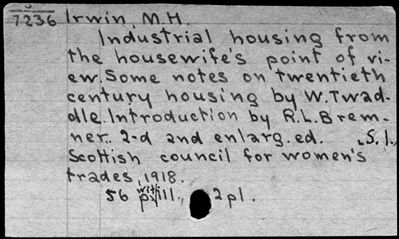 7236 Irwin, M.H.
Industrial housing from
the housewife's point of vi-
ew. Some notes on twentieth
century housing by W. Twad-
dle. Introduction by R.L. Brem-
ner. 2-d and enlarg. ed. S. l.,
Scottish council for women's
trades, 1918.
56 p. with ill., 2 pl.